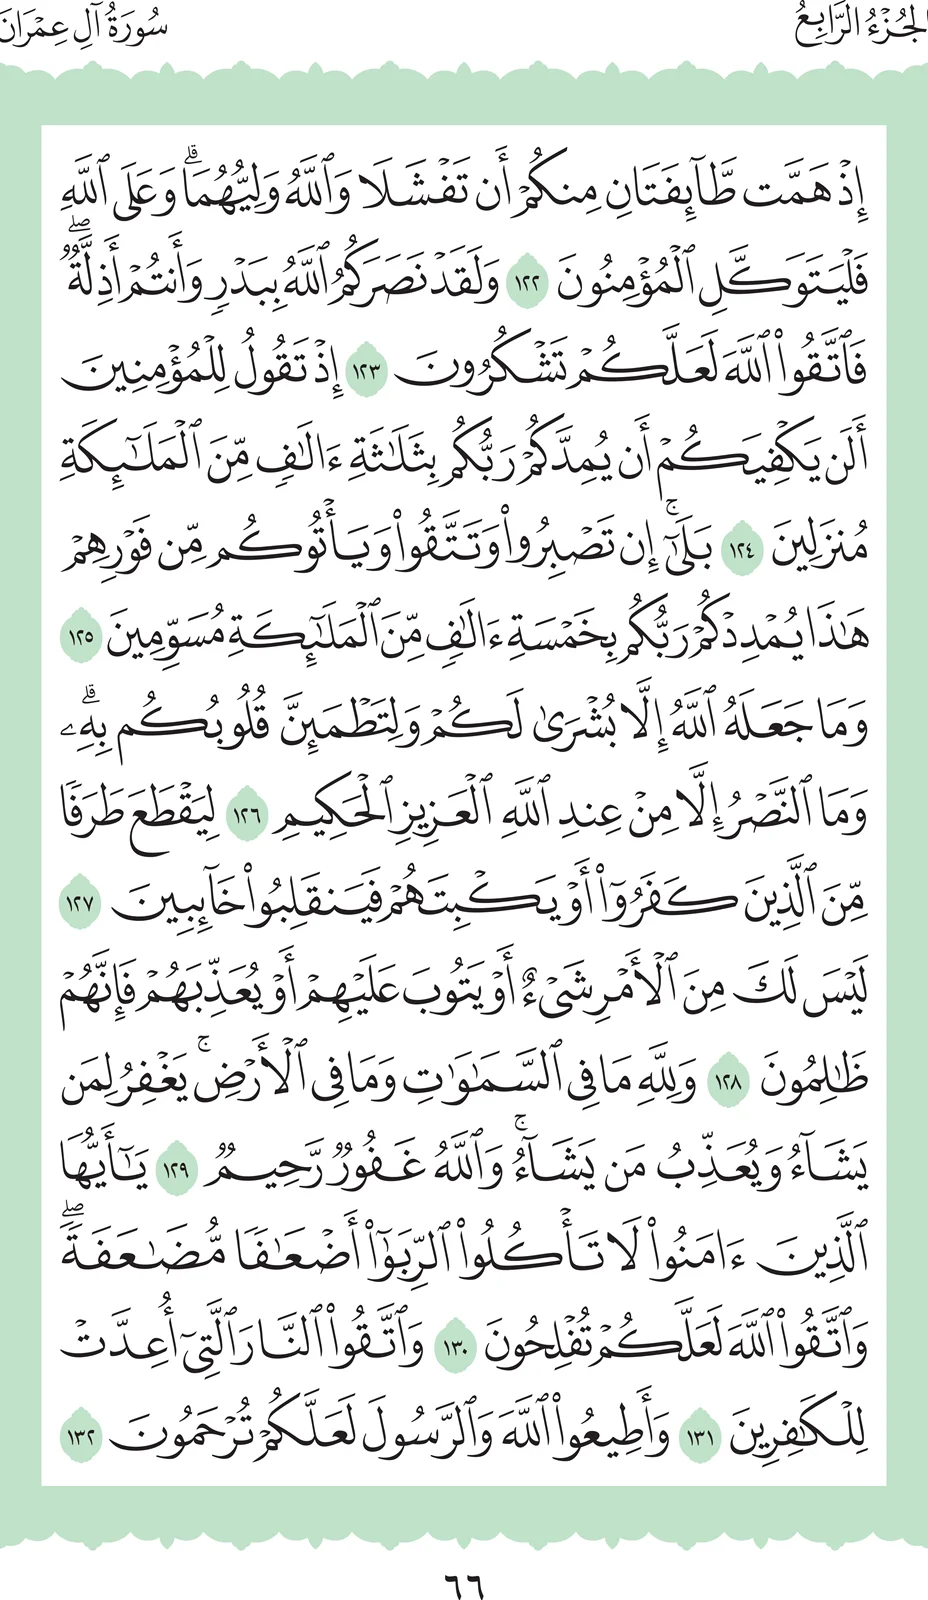 الجُزْءُ الرَّابِعُ
سُورَةُ آلِ عِمْرَانَ
إِذْ هَمَّت طَّآئِفَتَانِ مِنكُمْ أَن تَفْشَلَا وَٱللَّهُ وَلِيُّهُمَاۗ وَعَلَى ٱللَّهِ
فَلْيَتَوَكَّلِ ٱلْمُؤْمِنُونَ ١٢٢ وَلَقَدْ نَصَرَكُمُ ٱللَّهُ بِبَدْرٍ وَأَنتُمْ أَذِلَّةٌۖ
فَٱتَّقُوا۟ ٱللَّهَ لَعَلَّكُمْ تَشْكُرُونَ ١٢٣ إِذْ تَقُولُ لِلْمُؤْمِنِينَ
أَلَن يَكْفِيَكُمْ أَن يُمِدَّكُمْ رَبُّكُم بِثَلَـٰثَةِ ءَالَـٰفٍ مِّنَ ٱلْمَلَـٰٓئِكَةِ
مُنزَلِينَ ١٢٤ بَلَىٰٓۚ إِن تَصْبِرُوا۟ وَتَتَّقُوا۟ وَيَأْتُوكُم مِّن فَوْرِهِمْ
هَـٰذَا يُمْدِدْكُمْ رَبُّكُم بِخَمْسَةِ ءَالَـٰفٍ مِّنَ ٱلْمَلَـٰٓئِكَةِ مُسَوِّمِينَ ١٢٥
وَمَا جَعَلَهُ ٱللَّهُ إِلَّا بُشْرَىٰ لَكُمْ وَلِتَطْمَئِنَّ قُلُوبُكُم بِهِۦۗ
وَمَا ٱلنَّصْرُ إِلَّا مِنْ عِندِ ٱللَّهِ ٱلْعَزِيزِ ٱلْحَكِيمِ ١٢٦ لِيَقْطَعَ طَرَفًا
مِّنَ ٱلَّذِينَ كَفَرُوٓا۟ أَوْ يَكْبِتَهُمْ فَيَنقَلِبُوا۟ خَآئِبِينَ ١٢٧
لَيْسَ لَكَ مِنَ ٱلْأَمْرِ شَىْءٌ أَوْ يَتُوبَ عَلَيْهِمْ أَوْ يُعَذِّبَهُمْ فَإِنَّهُمْ
ظَـٰلِمُونَ ١٢٨ وَلِلَّهِ مَا فِى ٱلسَّمَـٰوَٰتِ وَمَا فِى ٱلْأَرْضِۚ يَغْفِرُ لِمَن
يَشَآءُ وَيُعَذِّبُ مَن يَشَآءُۚ وَٱللَّهُ غَفُورٌ رَّحِيمٌ ١٢٩ يَـٰٓأَيُّهَا
ٱلَّذِينَ ءَامَنُوا۟ لَا تَأْكُلُوا۟ ٱلرِّبَوٰٓا۟ أَضْعَـٰفًا مُّضَـٰعَفَةًۖ
وَٱتَّقُوا۟ ٱللَّهَ لَعَلَّكُمْ تُفْلِحُونَ ١٣٠ وَٱتَّقُوا۟ ٱلنَّارَ ٱلَّتِىٓ أُعِدَّتْ
لِلْكَـٰفِرِينَ ١٣١ وَأَطِيعُوا۟ ٱللَّهَ وَٱلرَّسُولَ لَعَلَّكُمْ تُرْحَمُونَ ١٣٢
٦٦